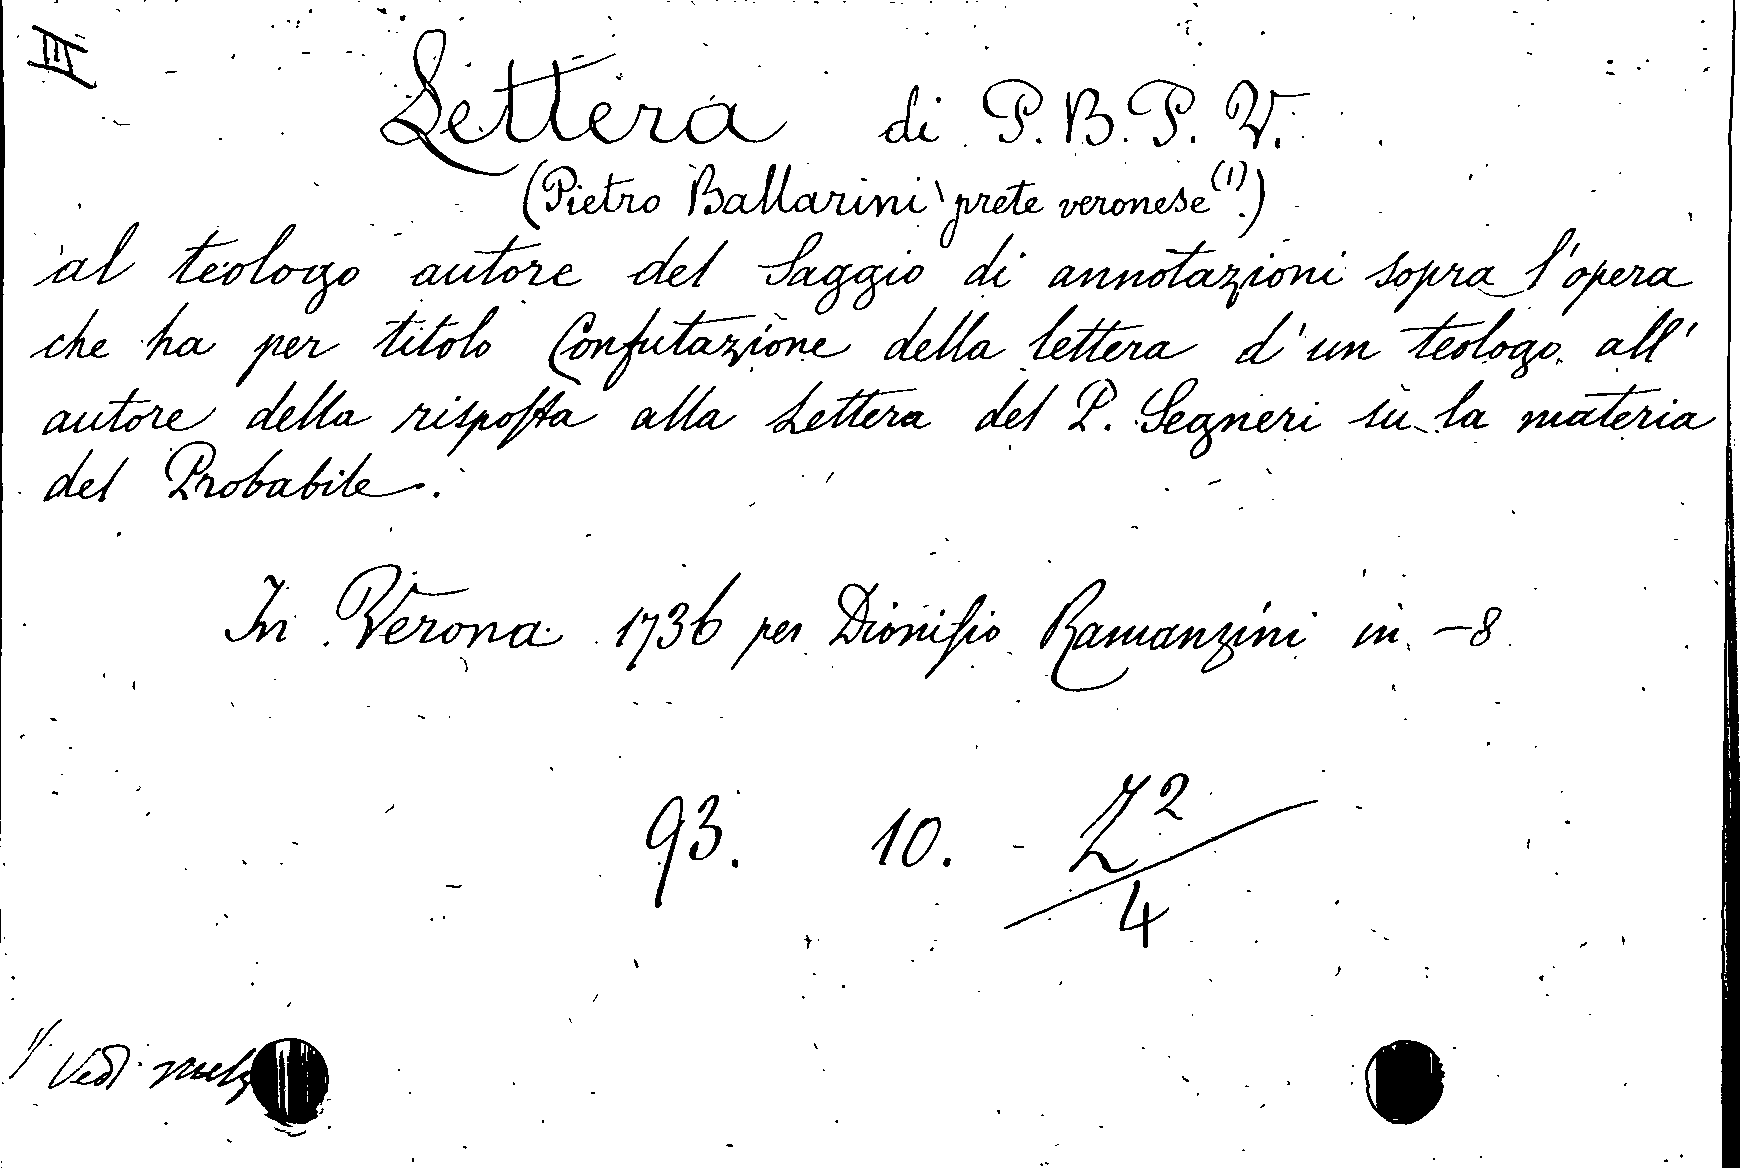 III
Lettera di P. B. P. V.
(Pietro Ballarini prete veronese (1).)
al teologo autore del Saggio di annotazioni sopra l'opera
che ha per titolo Confutazione della lettera d'un teologo all'
autore della risposta alla Lettera del P. Segneri su la materia
del Probabile.
In Verona 1736 per Dionisio Ramanzini in -8
93. 10. Z2
4
1) Vedi